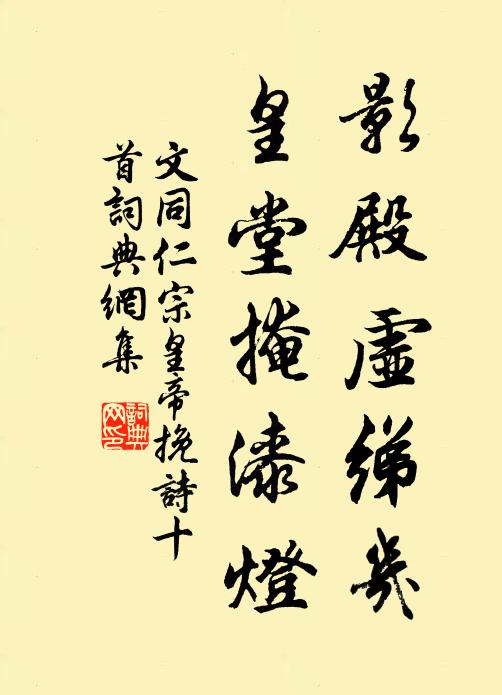 影殿虛綈几
皇堂掩漆燈
文同仁宗皇帝挽詩十
首詞典網集
詞典
网印